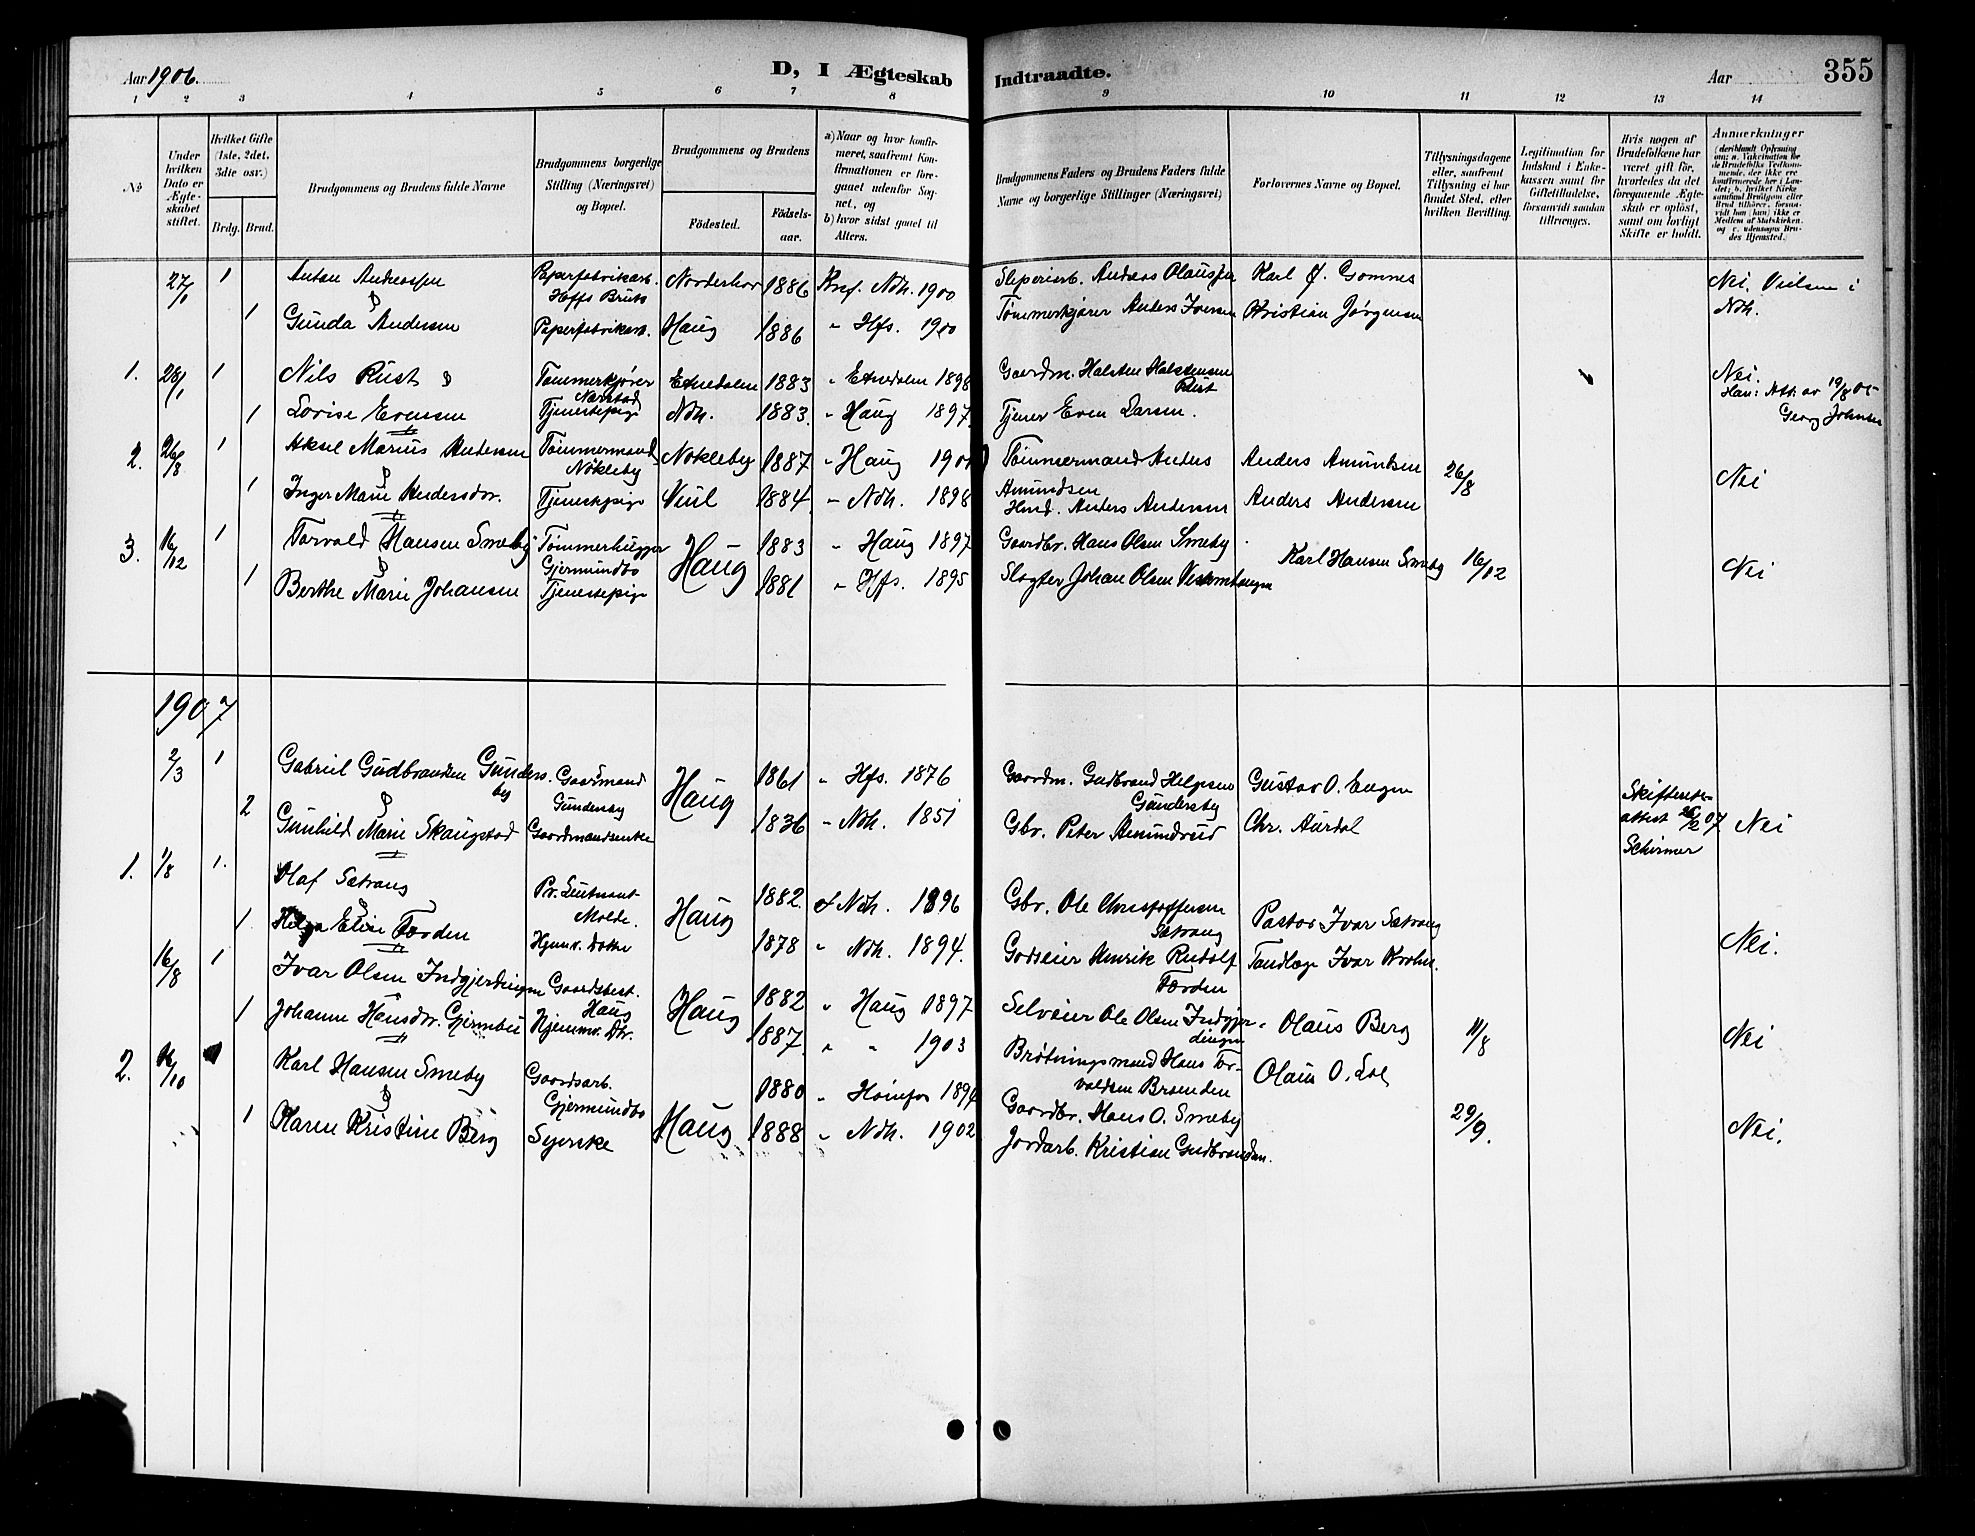 Aar 1906.
D, I Ægteskab Indtraadte.
Aar
355
1 2 3 4 5 6 7 8 9 10 11 12 13 14
No
Under hvilken Dato er Ægteskabet stiftet.
Hvilket Gifte (1ste, 2det, 3die osv.)
Brdg. Brud.
Brudgommens og Brudens fulde Navne
Brudgommens borgerlige Stilling (Næringsvei) og Bopæl.
Brudgommens og Brudens
Fødested.
Fødselsaar.
a) Naar og hvor konfirmeret, saafremt Konfirmationen er foregaaet udenfor Sognet, og
b) hvor sidst gaaet til Alters.
Brudgommens Faders og Brudens Faders fulde Navne og borgerlige Stillinger (Næringsvei)
Forlovernes Navne og Bopæl.
Tillysningsdagene eller, saafremt Tillysning ei har fundet Sted, efter hvilken Bevilling.
Legitimation for Indskud i Enkekassen samt for Giftetilladelse, forsaavidt saadan tiltrænges.
Hvis nogen af Brudefolkene har været gift før, hvorledes da det foregaaende Ægteskab er opløst, samt om lovligt Skifte er holdt.
Anmerkninger
27/1 1 Anton Andreassen Papirfabrikarb. Hofs Brug Norderhov 1886 Knf. Ndh. 1900 Sliperiarb. Andreas Olaussen Karl J. Gomnes Nei. Vielsen i Ndh.
&
1 Gunda Andersen Papirfabrikarb. Haug 1886 " Hfs. 1900 Tømmerkjører Anders Iversen Kristian Jørgensen
1. 28/1 1 Nils Rust & Tømmerkjører Etnedalen 1883 " Etnedalen 1898 Gaardm. Halsten Halstensen Rust Nei.
Han: Att. av 19/8 05
1 Lovise Evensen Tjenestepige Ndh. 1883. " Haug 1897. Tjener Even Larsen. Georg Johnsen
2. 26/8 1 Aksel Marius Andersen Tømmermand Nøkleby Nøkleby 1887 " Haug 1901 Tømmermand Anders Amundsen Anders Amundsen 26/8 Nei
&
1 Inger Marie Andersdtr. Tjenestepige Veul 1884 " Ndh. 1898 Hmd. Anders Andersen Anders Andersen
3. 16/12 1 Torvald Hansen Smeby Tømmerhugger Gjermundbo Haug 1883 " Haug 1897 Gaardbr. Hans Olsen Smeby Karl Hansen Smeby 16/12 Nei
&
1 Berthe Marie Johansen Tjenestepige 1881 " Hfs. 1895 Slagter Johan Olsen
1907
2/3 1 Gabriel Gudbrandsen Gundersby Gaardmand Gundersby Haug 1861 " Hfs. 1876 Gaardm. Gudbrand Helgesen Gundersby Gustav O. Engen Skifteretsattest 26/2 07 Schirmer Nei
&
2 Gunhild Marie Skaugstad Gaardmandsenke 1836 " Ndh. 1851 Gbr. Peter Amundrud Chr. Aurdal
1. 1/8 1. Olaf Sætrang Pr. Leutnant Molde. Haug 1882. " Ndh. 1896 Gbr. Ole Christoffersen Sætrang Pastor Ivar Sætrang Nei.
&
1 Helga Elise Førden Hjemv. Datter 1878 " Ndh. 1894. Godseier Henrik Rudolf Førden Tandlæge Ivar Krohn.
16/8 1 Ivar Olsen Indgjerdingen Gaardsbest. Haug Haug 1882 " Haug 1897 Selveier Ole Olsen Indgjerdingen Olaus Berg 11/8 Nei
1 Johanne Hansdtr. Hjemmv. Dtr. 1887. " " 1903 Brøtningsmand Hans Torvaldsen Brænden Olaus O. Lol
2. 16/10 Karl Hansen Smeby Gaardsarb. Gjermundbo Haug 1880 " Hønefos 1894 Gaardbr. Hans O. Smeby 29/9. Nei.
&
1 Karen Kristine Berg Syerske 1888 " Ndh. 1902 Jordarb. Kristian Gudbrandsen.